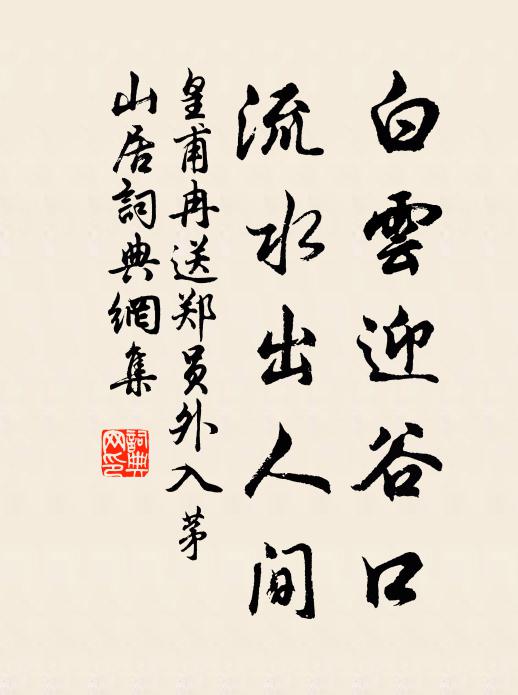 白雲迎谷口
流水出人间
皇甫冉送郑员外入茅
山居詞典網集
詞典
网印